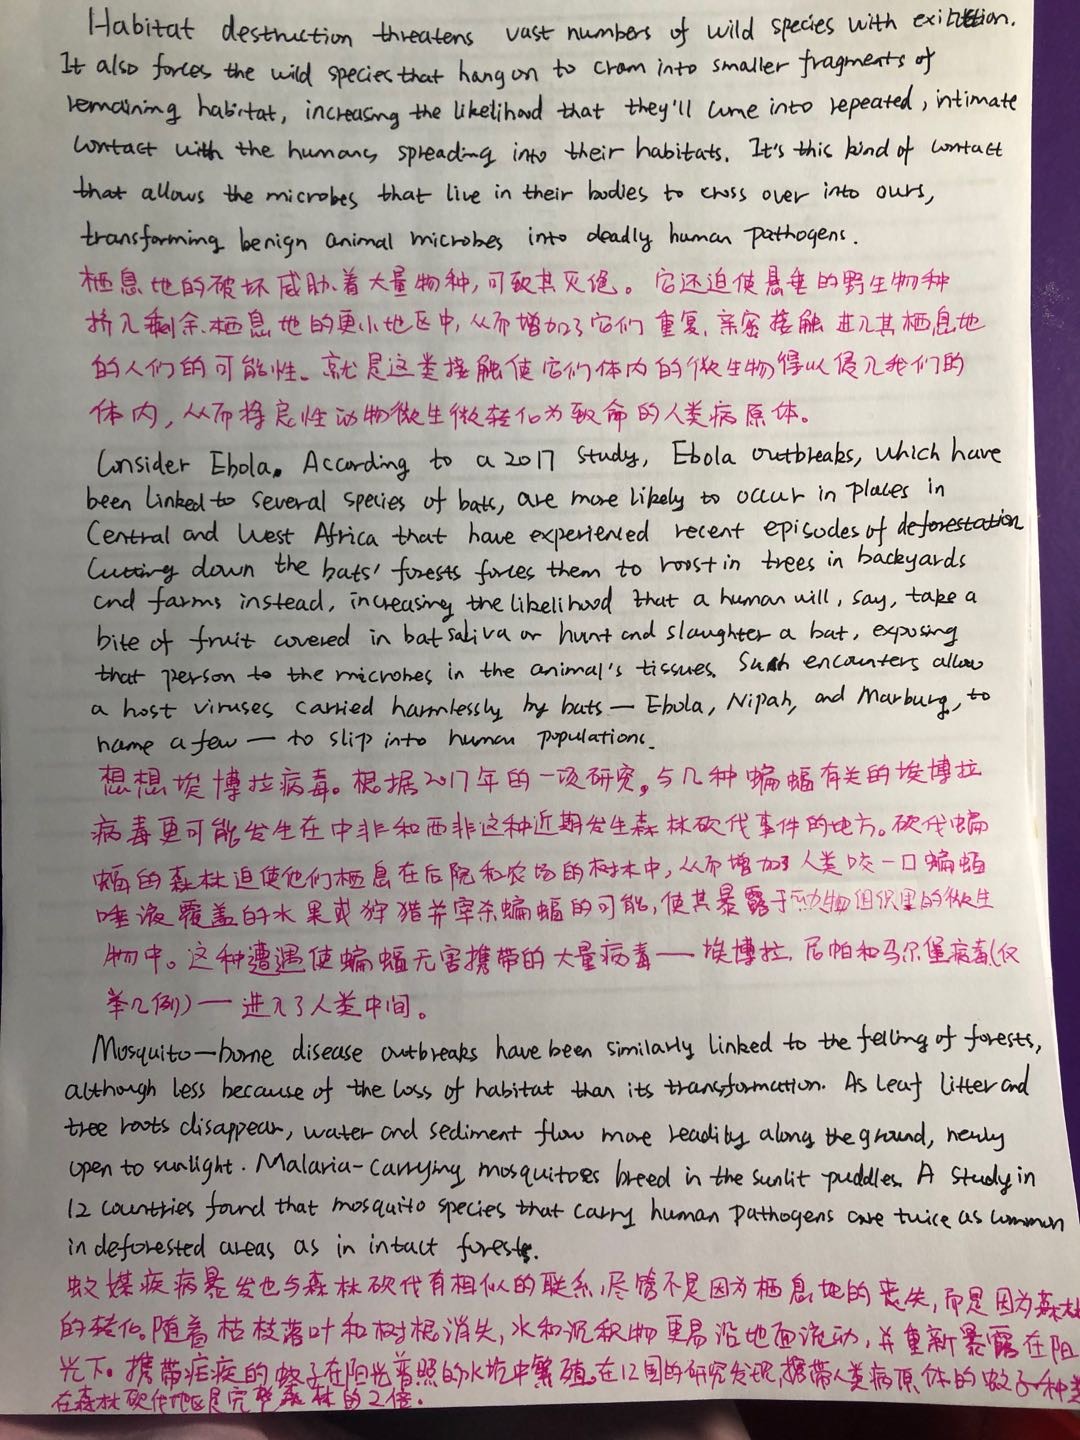 Habitat destruction threatens vast numbers of wild species with
It also forces the wild species that hang on to cram into smaller fragments of
remaining habitat, increasing the likelihood that they'll come into repeated, intimate
contact with the humans spreading into their habitats. It's this kind of contact
that allows the microbes that live in their bodies to cross over into ours,
transforming benign animal microbes into deadly human pathogens.
栖息地的破坏威胁着大量物种,可致其灭绝。它还迫使悬垂的野生物种
挤入剩余栖息地的更小地区中,从而增加了它们重复、亲密接触进入其栖息地
的人们的可能性。就是这类接触使它们体内的微生物得以侵入我们的
体内,从而将良性动物微生微转化为致命的人类病原体。
Consider Ebola. According to a 2017 study, Ebola outbreaks, which have
been linked to several species of bats, are more likely to occur in places in
Central and West Africa that have experienced recent episodes of deforestation
Cutting down the bats' forests forces them to roost in trees in backyards
and farms instead, increasing the likelihood that a human will, say, take a
bite of fruit covered in bat saliva or hunt and slaughter a bat, exposing
that person to the microbes in the animal's tissues. Such encounters allow
a host viruses carried harmlessly by bats — Ebola, Nipah, and Marburg, to
name a few — to slip into human populations.
想想埃博拉病毒。根据2017年的一项研究,与几种蝙蝠有关的埃博拉
病毒更可能发生在中非和西非这种近期发生森林砍伐事件的地方。砍伐蝙
蝠的森林迫使他们栖息在后院和农场的树木中,从而增加了人类咬一口蝙蝠
唾液覆盖的水果或狩猎并宰杀蝙蝠的可能,使其暴露于动物组织里的微生
物中。这种遭遇使蝙蝠无害携带的大量病毒——埃博拉、尼帕和马尔堡病毒(仅
举几例)——进入了人类中间。
Mosquito—borne disease outbreaks have been similarly linked to the felling of forests,
although less because of the loss of habitat than its transformation. As leaf litter and
tree roots disappear, water and sediment flow more readily along the ground, newly
open to sunlight. Malaria-carrying mosquitoes breed in the sunlit puddles. A study in
12 countries found that mosquito species that carry human pathogens are twice as common
in deforested areas as in intact forests.
蚊媒疾病暴发也与森林砍伐有相似的联系,尽管不是因为栖息地的丧失,而是因为森林
的转化。随着枯枝落叶和树根消失,水和沉积物更易沿地面流动,并重新暴露在阳
光下。携带疟疾的蚊子在阳光普照的水坑中繁殖。在12国的研究发现,携带人类病原体的蚊子种类
在森林砍伐地区是完整森林的2倍.